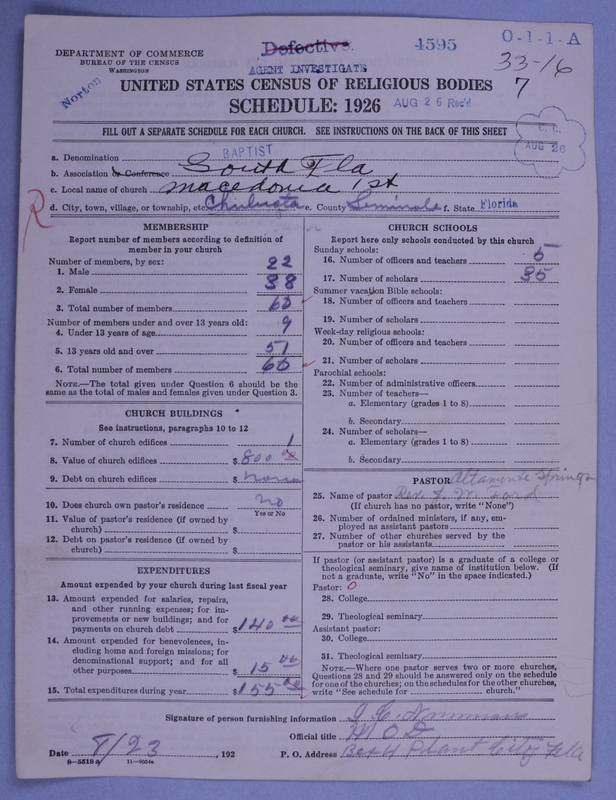 Defective.
4595
0-1-1-A
DEPARTMENT OF COMMERCE
BUREAU OF THE CENSUS
WASHINGTON
AGENT INVESTIGATE
33-16
7
Norton
UNITED STATES CENSUS OF RELIGIOUS BODIES
SCHEDULE: 1926
AUG 26 Rec'd
FILL OUT A SEPARATE SCHEDULE FOR EACH CHURCH. SEE INSTRUCTIONS ON THE BACK OF THIS SHEET
AUG 26
a. Denomination BAPTIST
b. Association or Conference South Fla
c. Local name of church Macedonia 1st
d. City, town, village, or township, etc. Chuluota e. County Seminole f. State Florida
R
MEMBERSHIP
Report number of members according to definition of member in your church
Number of members, by sex:
1. Male 22
2. Female 38
3. Total number of members 60
Number of members under and over 13 years old:
4. Under 13 years of age 9
5. 13 years old and over 51
6. Total number of members 60
NOTE.—The total given under Question 6 should be the same as the total of males and females given under Question 3.
CHURCH BUILDINGS
See instructions, paragraphs 10 to 12
7. Number of church edifices 1
8. Value of church edifices $ 800 00
9. Debt on church edifices $ none
10. Does church own pastor's residence no
Yes or No
11. Value of pastor's residence (if owned by church) $
12. Debt on pastor's residence (if owned by church) $
EXPENDITURES
Amount expended by your church during last fiscal year
13. Amount expended for salaries, repairs, and other running expenses; for improvements or new buildings; and for payments on church debt $ 140 00
14. Amount expended for benevolences, including home and foreign missions; for denominational support; and for all other purposes $ 15 00
15. Total expenditures during year $ 155 00
CHURCH SCHOOLS
Report here only schools conducted by this church
Sunday schools:
16. Number of officers and teachers 5
17. Number of scholars 35
Summer vacation Bible schools:
18. Number of officers and teachers
19. Number of scholars
Week-day religious schools:
20. Number of officers and teachers
21. Number of scholars
Parochial schools:
22. Number of administrative officers
23. Number of teachers—
a. Elementary (grades 1 to 8)
b. Secondary
24. Number of scholars—
a. Elementary (grades 1 to 8)
b. Secondary
PASTOR Altamonte Springs
25. Name of pastor Rev. W. Ford
(If church has no pastor, write "None")
26. Number of ordained ministers, if any, employed as assistant pastors
27. Number of other churches served by the pastor or his assistants
If pastor (or assistant pastor) is a graduate of a college or theological seminary, give name of institution below. (If not a graduate, write "No" in the space indicated.)
Pastor: 0
28. College
29. Theological seminary
Assistant pastor:
30. College
31. Theological seminary
NOTE.—Where one pastor serves two or more churches, Questions 28 and 29 should be answered only on the schedule for one of the churches; on the schedules for the other churches, write "See schedule for church."
Signature of person furnishing information
Official title
Date 8/23, 192
P. O. Address Box 4 Plant City Fla
8-5518 a 11-9054a